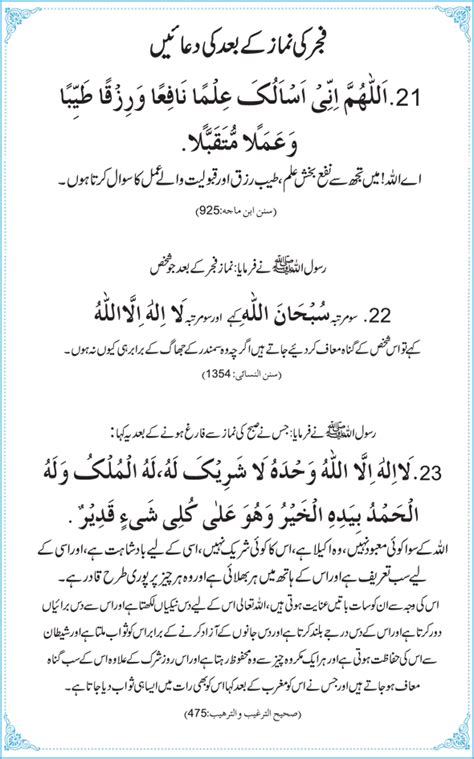 فجر کی نماز کے بعد کی دعائیں
21. اَللّٰهُمَّ اِنِّیْ اَسْاَلُکَ عِلْمًا نَافِعًا وَرِزْقًا طَیِّبًا
وَعَمَلًا مُّتَقَبَّلًا.
اے اللہ! میں تجھ سے نفع بخش علم، طیب رزق اور قبولیت والے عمل کا سوال کرتا ہوں۔
(سنن ابن ماجه:925)
رسول اللہ ﷺ نے فرمایا: نماز فجر کے بعد جو شخص
22. سو مرتبہ سُبْحَانَ اللّٰهِ کہے اور سو مرتبہ لَا اِلٰهَ اِلَّا اللّٰهُ
کہے تو اس شخص کے گناہ معاف کر دیئے جاتے ہیں اگر چہ وہ سمندر کے جھاگ کے برابر ہی کیوں نہ ہوں۔
(سنن النسائی: 1354)
رسول اللہ ﷺ نے فرمایا: جس نے صبح کی نماز سے فارغ ہونے کے بعد یہ کہا:
23. لَا اِلٰهَ اِلَّا اللّٰهُ وَحْدَهُ لَا شَرِیْکَ لَهُ، لَهُ الْمُلْکُ وَلَهُ
الْحَمْدُ بِیَدِهِ الْخَیْرُ وَهُوَ عَلٰی کُلِی شَیْءٍ قَدِیْرٌ .
اللہ کے سوا کوئی معبود نہیں، وہ اکیلا ہے، اس کا کوئی شریک نہیں، اسی کے لیے بادشاہت ہے، اور اسی کے
لیے سب تعریف ہے اور اس کے ہاتھ میں ہر بھلائی ہے اور وہ ہر چیز پر پوری طرح قادر ہے۔
اس کی وجہ سے ان کو سات باتیں عنایت ہوتی ہیں، اللہ تعالی اس کے لیے دس نیکیاں لکھتا ہے اور اس سے دس برائیاں
دور کرتا ہے اور اس کے دس درجے بلند کرتا ہے اور دس جانوں کے آزاد کرنے کے برابر اس کو ثواب ملتا ہے اور شیطان
سے اس کی حفاظت ہوتی ہے اور ہر ایک مکروہ چیز سے وہ محفوظ رہتا ہے اور اس روز شرک کے علاوہ اس کے سب گناہ
معاف ہو جاتے ہیں اور جس نے اس کو مغرب کے بعد کہا اس کو بھی رات میں ایسا ہی ثواب دیا جاتا ہے۔
(صحیح الترغیب والترهیب:475)